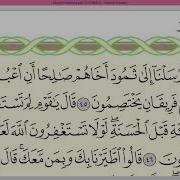 رْسَلْنَآ إِلَىٰ ثَمُودَ أَخَاهُمْ صَٰلِحًا أَنِ ٱعْبُ
مْ فَرِيقَانِ يَخْتَصِمُونَ ٤٥ قَالَ يَٰقَوْمِ لِمَ تَسْتَ
ةِ قَبْلَ ٱلْحَسَنَةِ ۖ لَوْلَا تَسْتَغْفِرُونَ ٱللَّهَ لَعَ
٤٦ قَالُوا۟ ٱطَّيَّرْنَا بِكَ وَبِمَن مَّعَكَ ۚ قَالَ